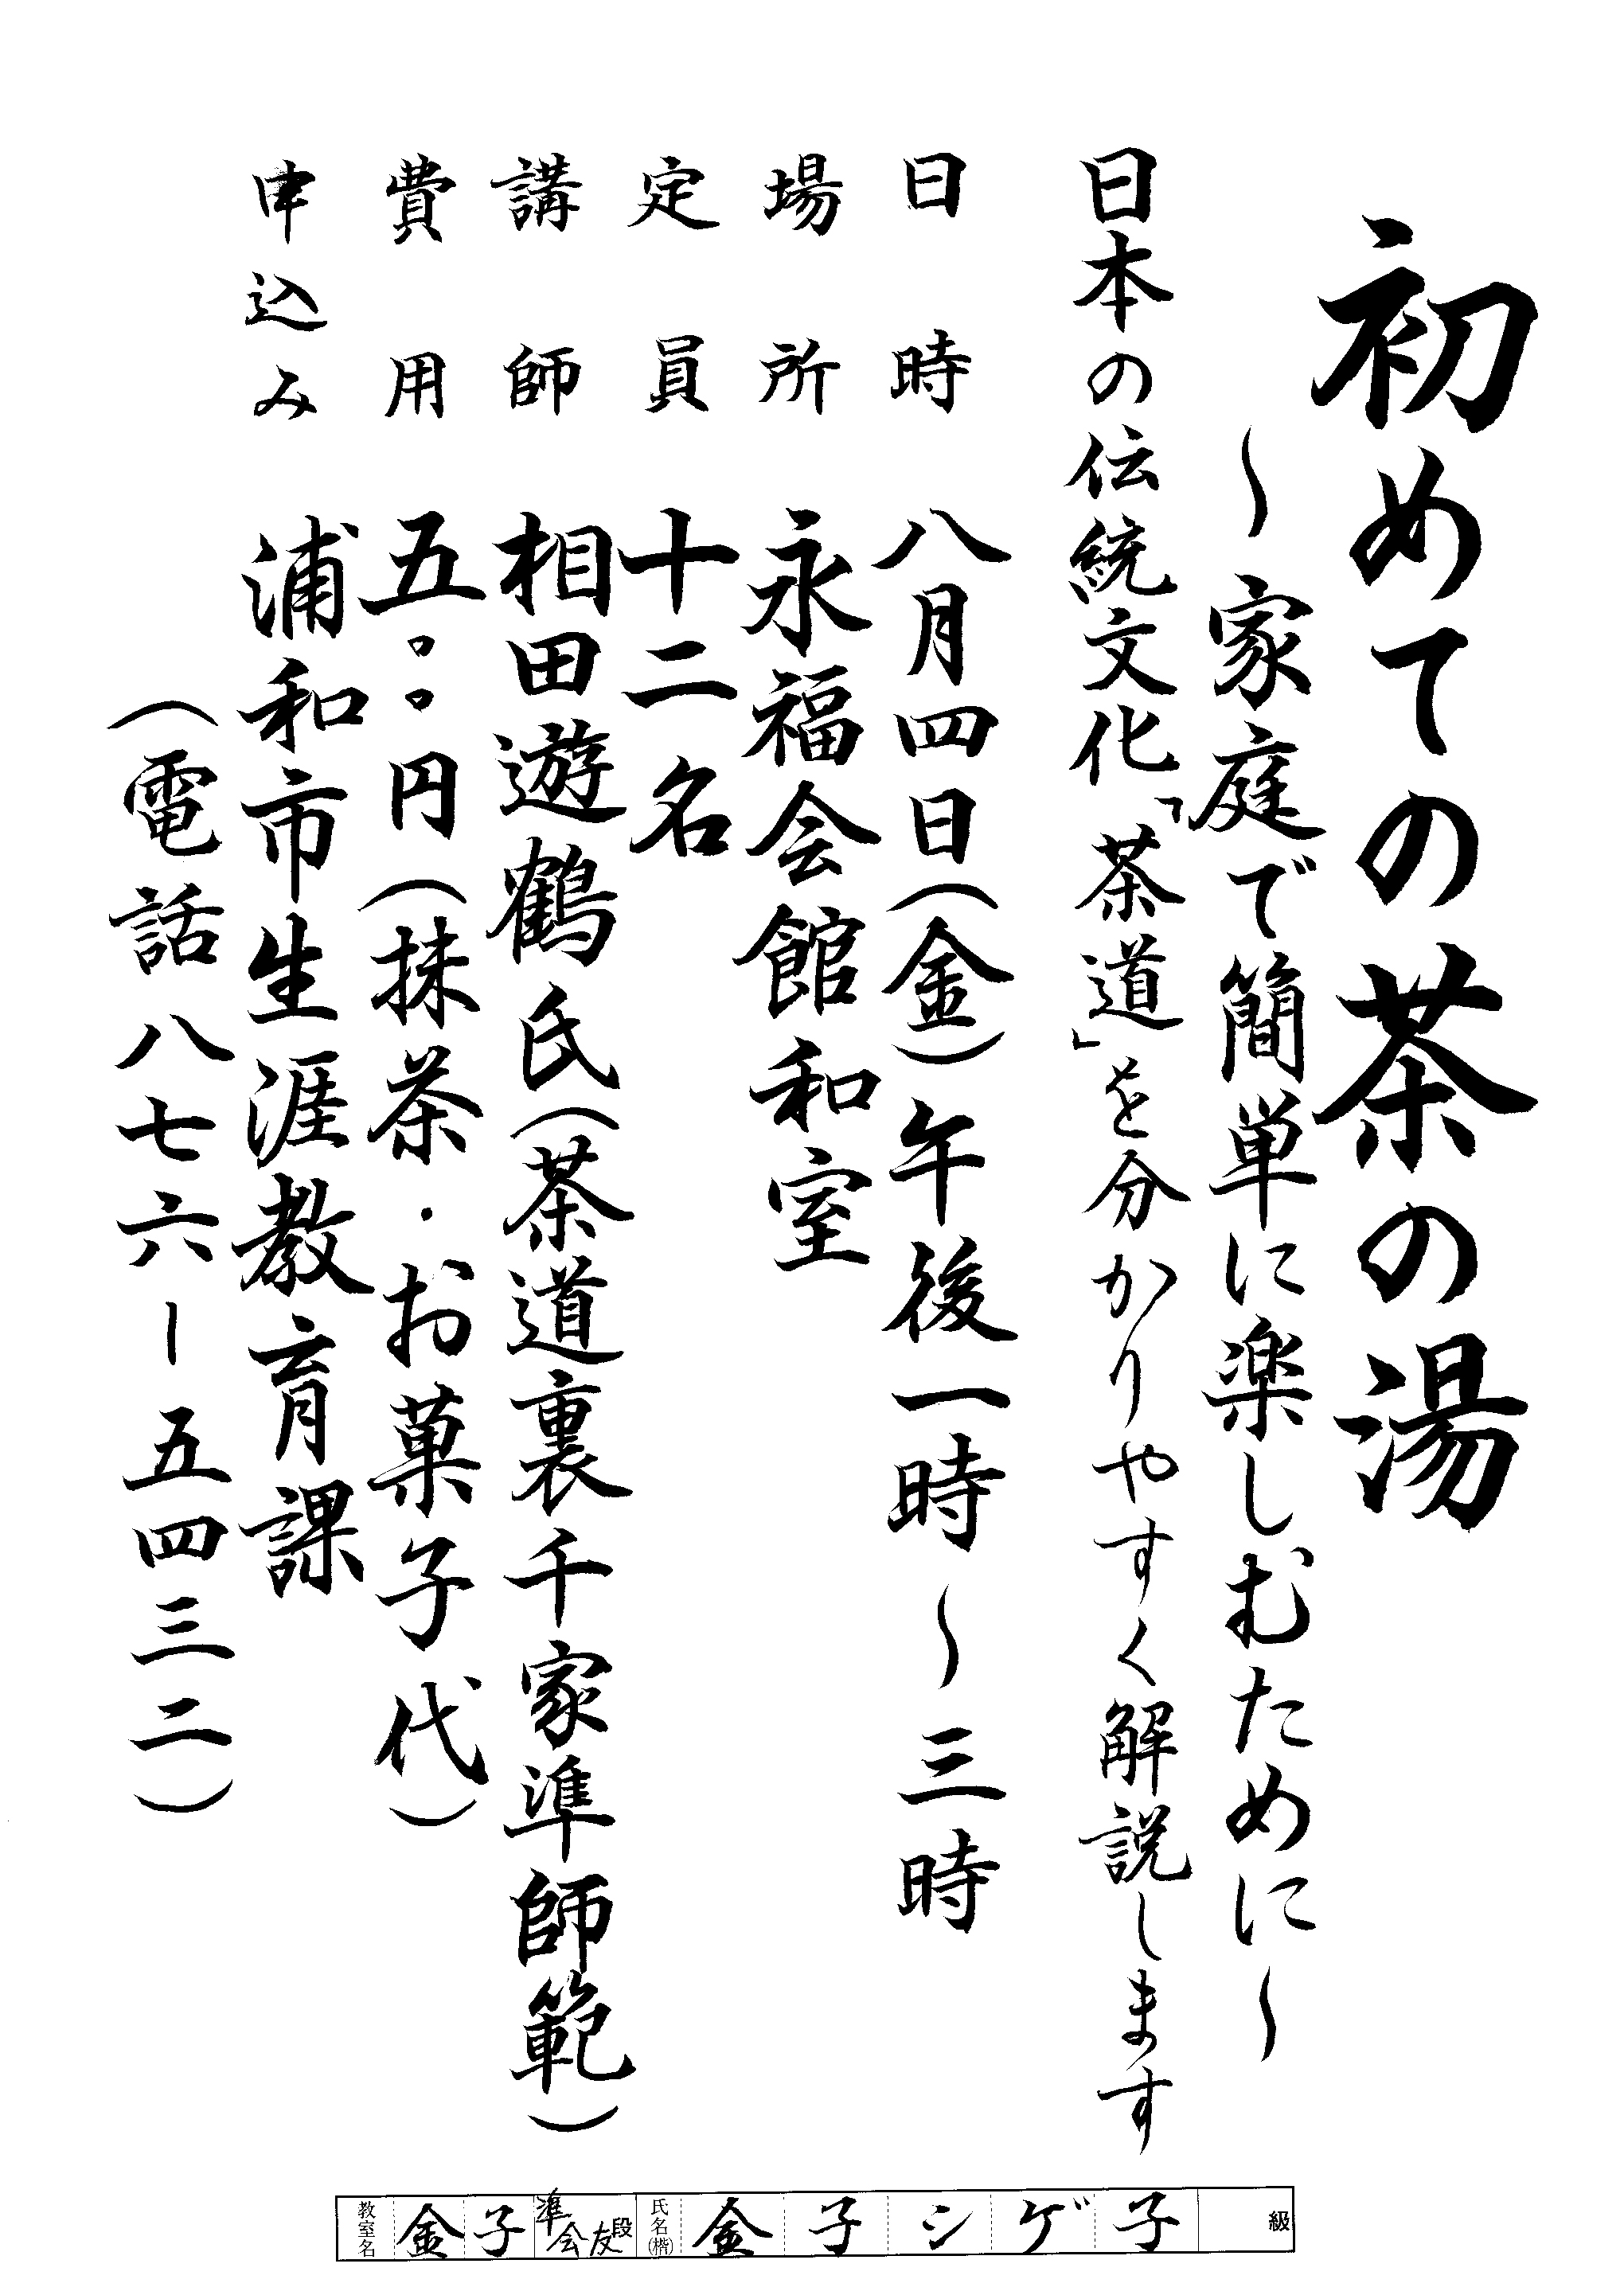 初めての茶の湯
〜家庭で簡単に楽しむために〜
日本の伝統文化「茶道」を分かりやすく解説します
日時 八月四日(金)午後一時〜三時
場所 永福会館和室
定員 十二名
講師 相田遊鶴氏(茶道裏千家準師範)
費用 五〇〇円(抹茶・お菓子代)
申込み 浦和市生涯教育課
(電話 八七六ー五四三二)
教室名 金子 準会友段 氏名(楷) 金子シゲ子 級